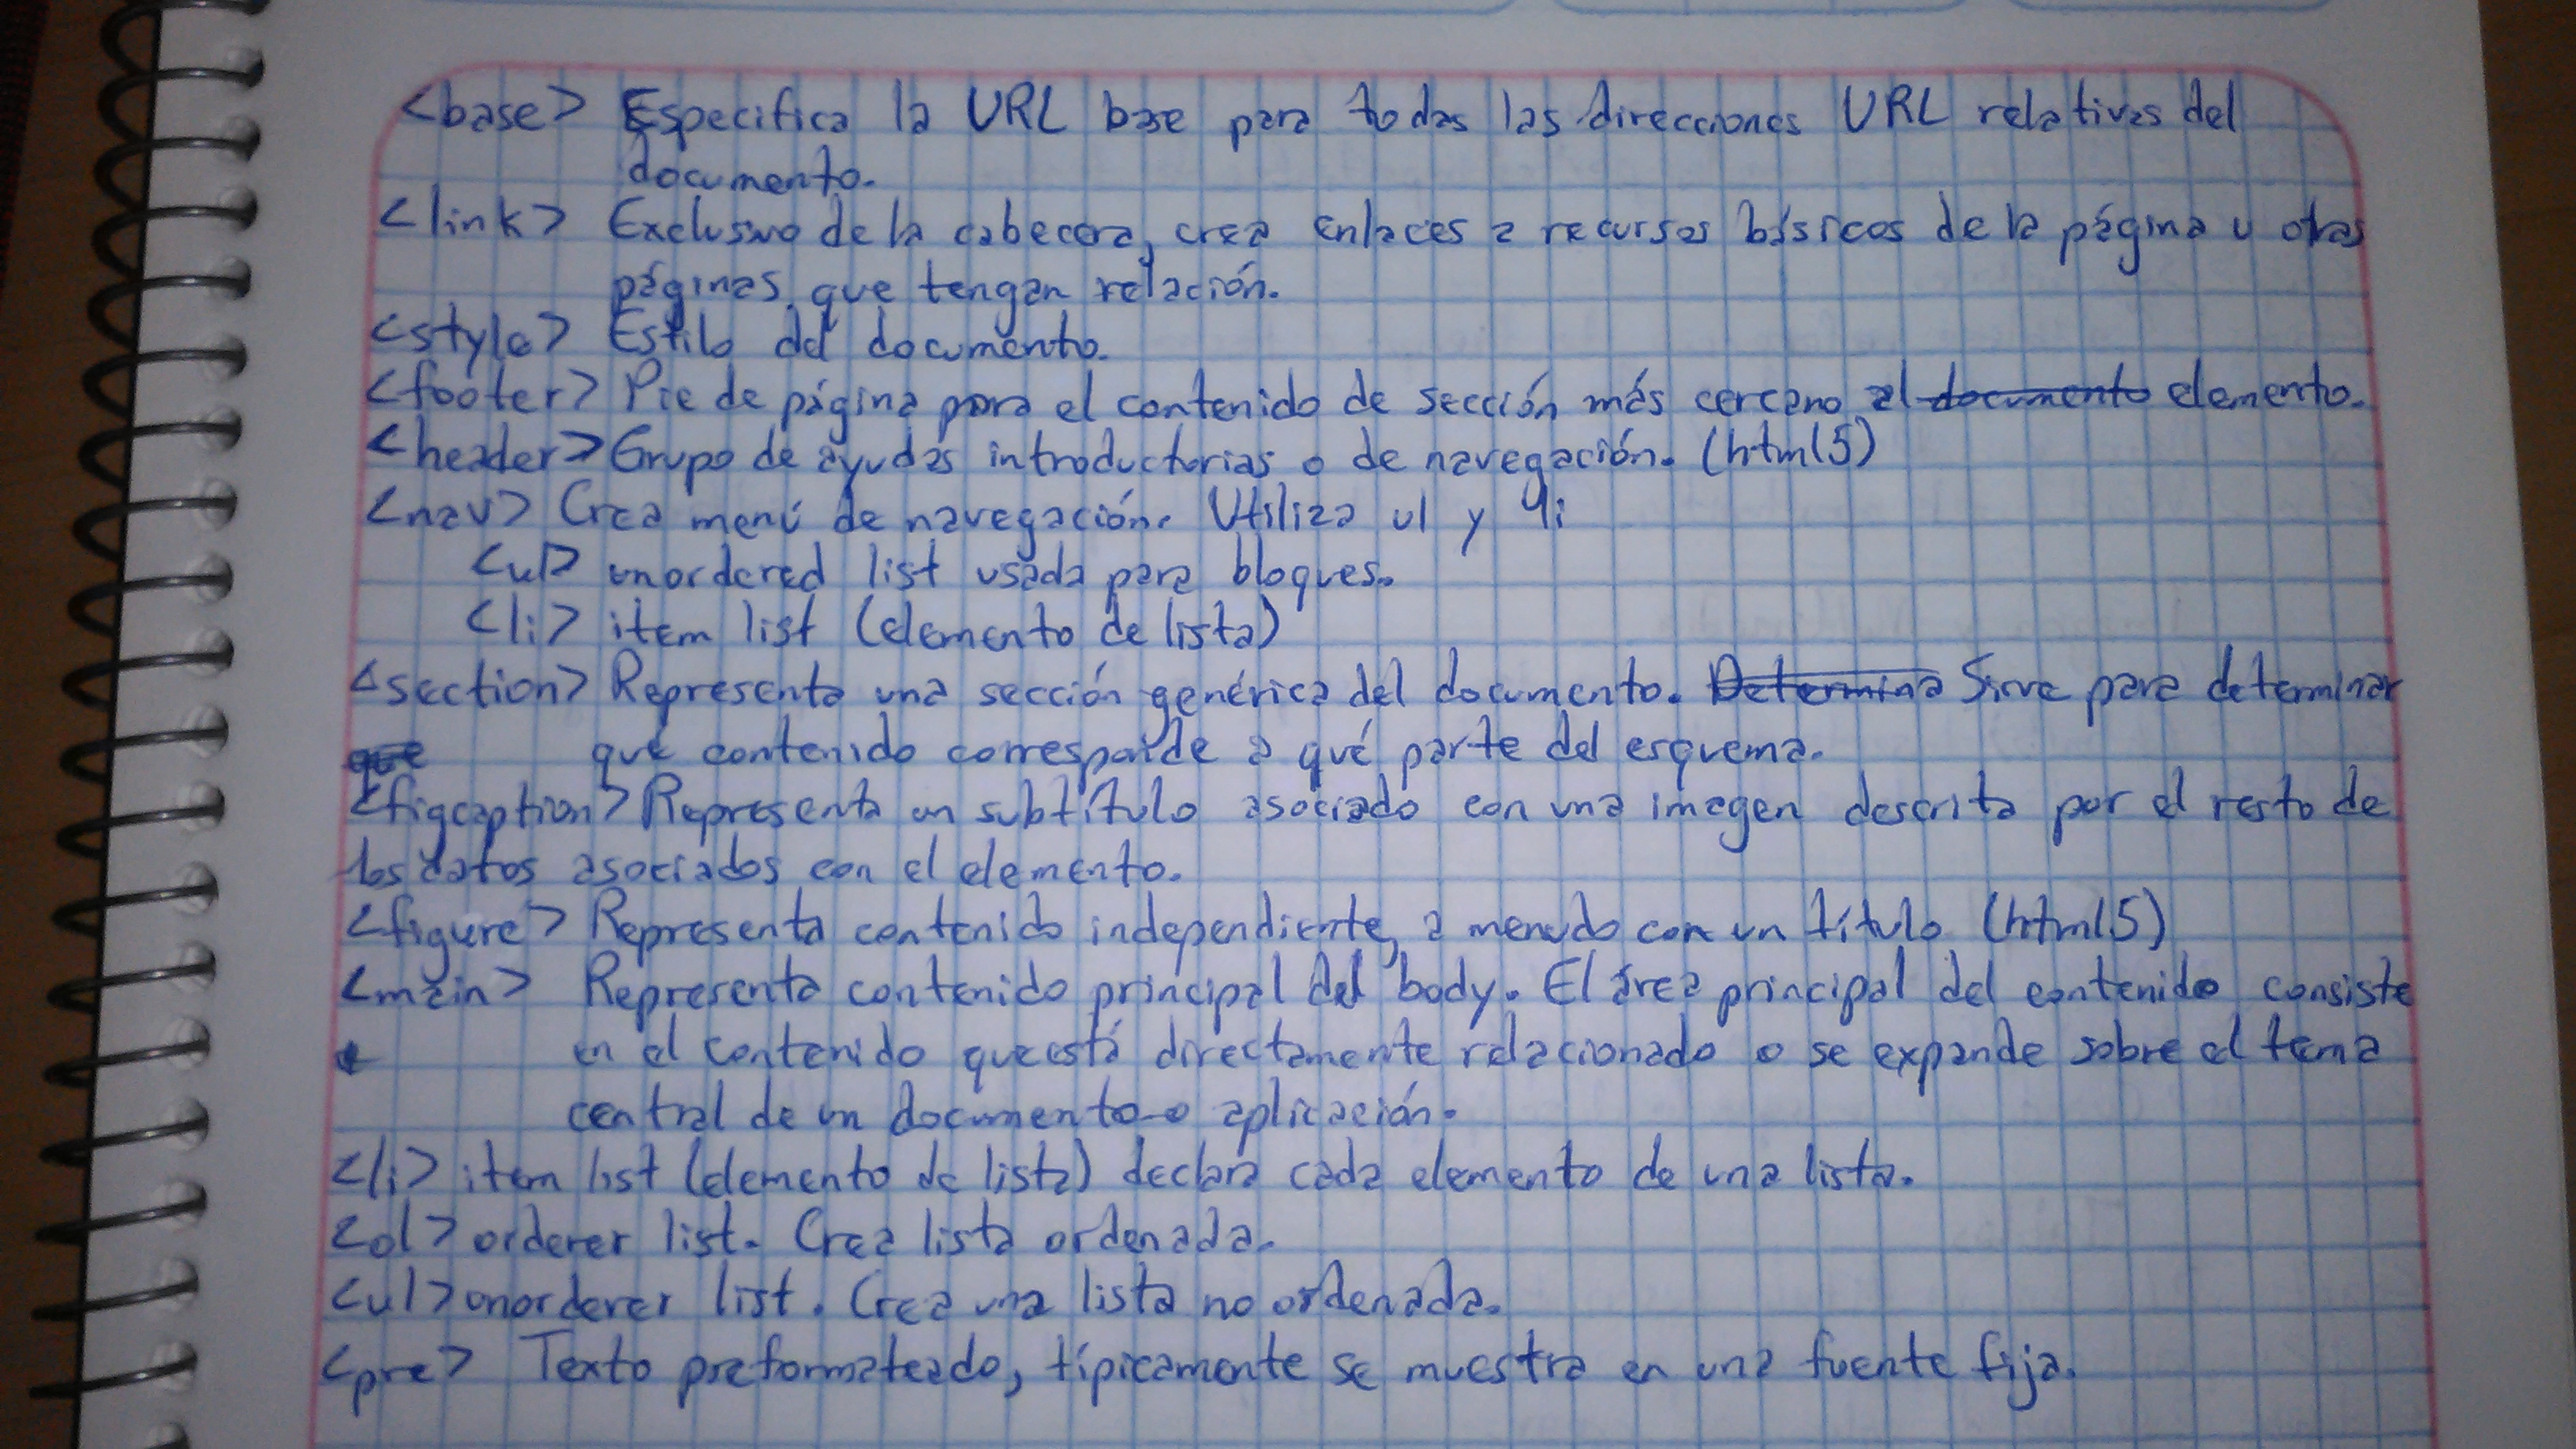 <base> Especifica la URL base para todas las direcciones URL relativas del
documento.
<link> Exclusivo de la cabecera, crea enlaces a recursos básicos de la página u otras
páginas que tengan relación.
<style> Estilo del documento.
<footer> Pie de página para el contenido de sección más cercano al documento elemento.
<header> Grupo de ayudas introductorias o de navegación. (html5)
<nav> Crea menú de navegación. Utiliza ul y li
<ul> unordered list usada para bloques.
<li> item list (elemento de lista)
<section> Representa una sección genérica del documento. Determina Sirve para determinar
que qué contenido corresponde a qué parte del esquema.
<figcaption> Representa un subtítulo asociado con una imagen descrita por el resto de
los datos asociados con el elemento.
<figure> Representa contenido independiente, a menudo con un título (html5)
<main> Representa contenido principal del body. El área principal del contenido consiste
en el contenido que está directamente relacionado o se expande sobre el tema
central de un documento o aplicación.
<li> item list (elemento de lista) declara cada elemento de una lista.
<ol> orderer list. Crea lista ordenada.
<ul> unorderer list. Crea una lista no ordenada.
<pre> Texto preformateado, típicamente se muestra en una fuente fija.